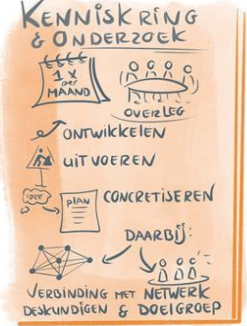 KENNISKRING
& ONDERZOEK
1 X
per
MAAND
OVERLEG
ONTWIKKELEN
UITVOEREN
PLAN
CONCRETISEREN
DAARBIJ:
VERBINDING MET NETWERK
DESKUNDIGEN & DOELGROEP